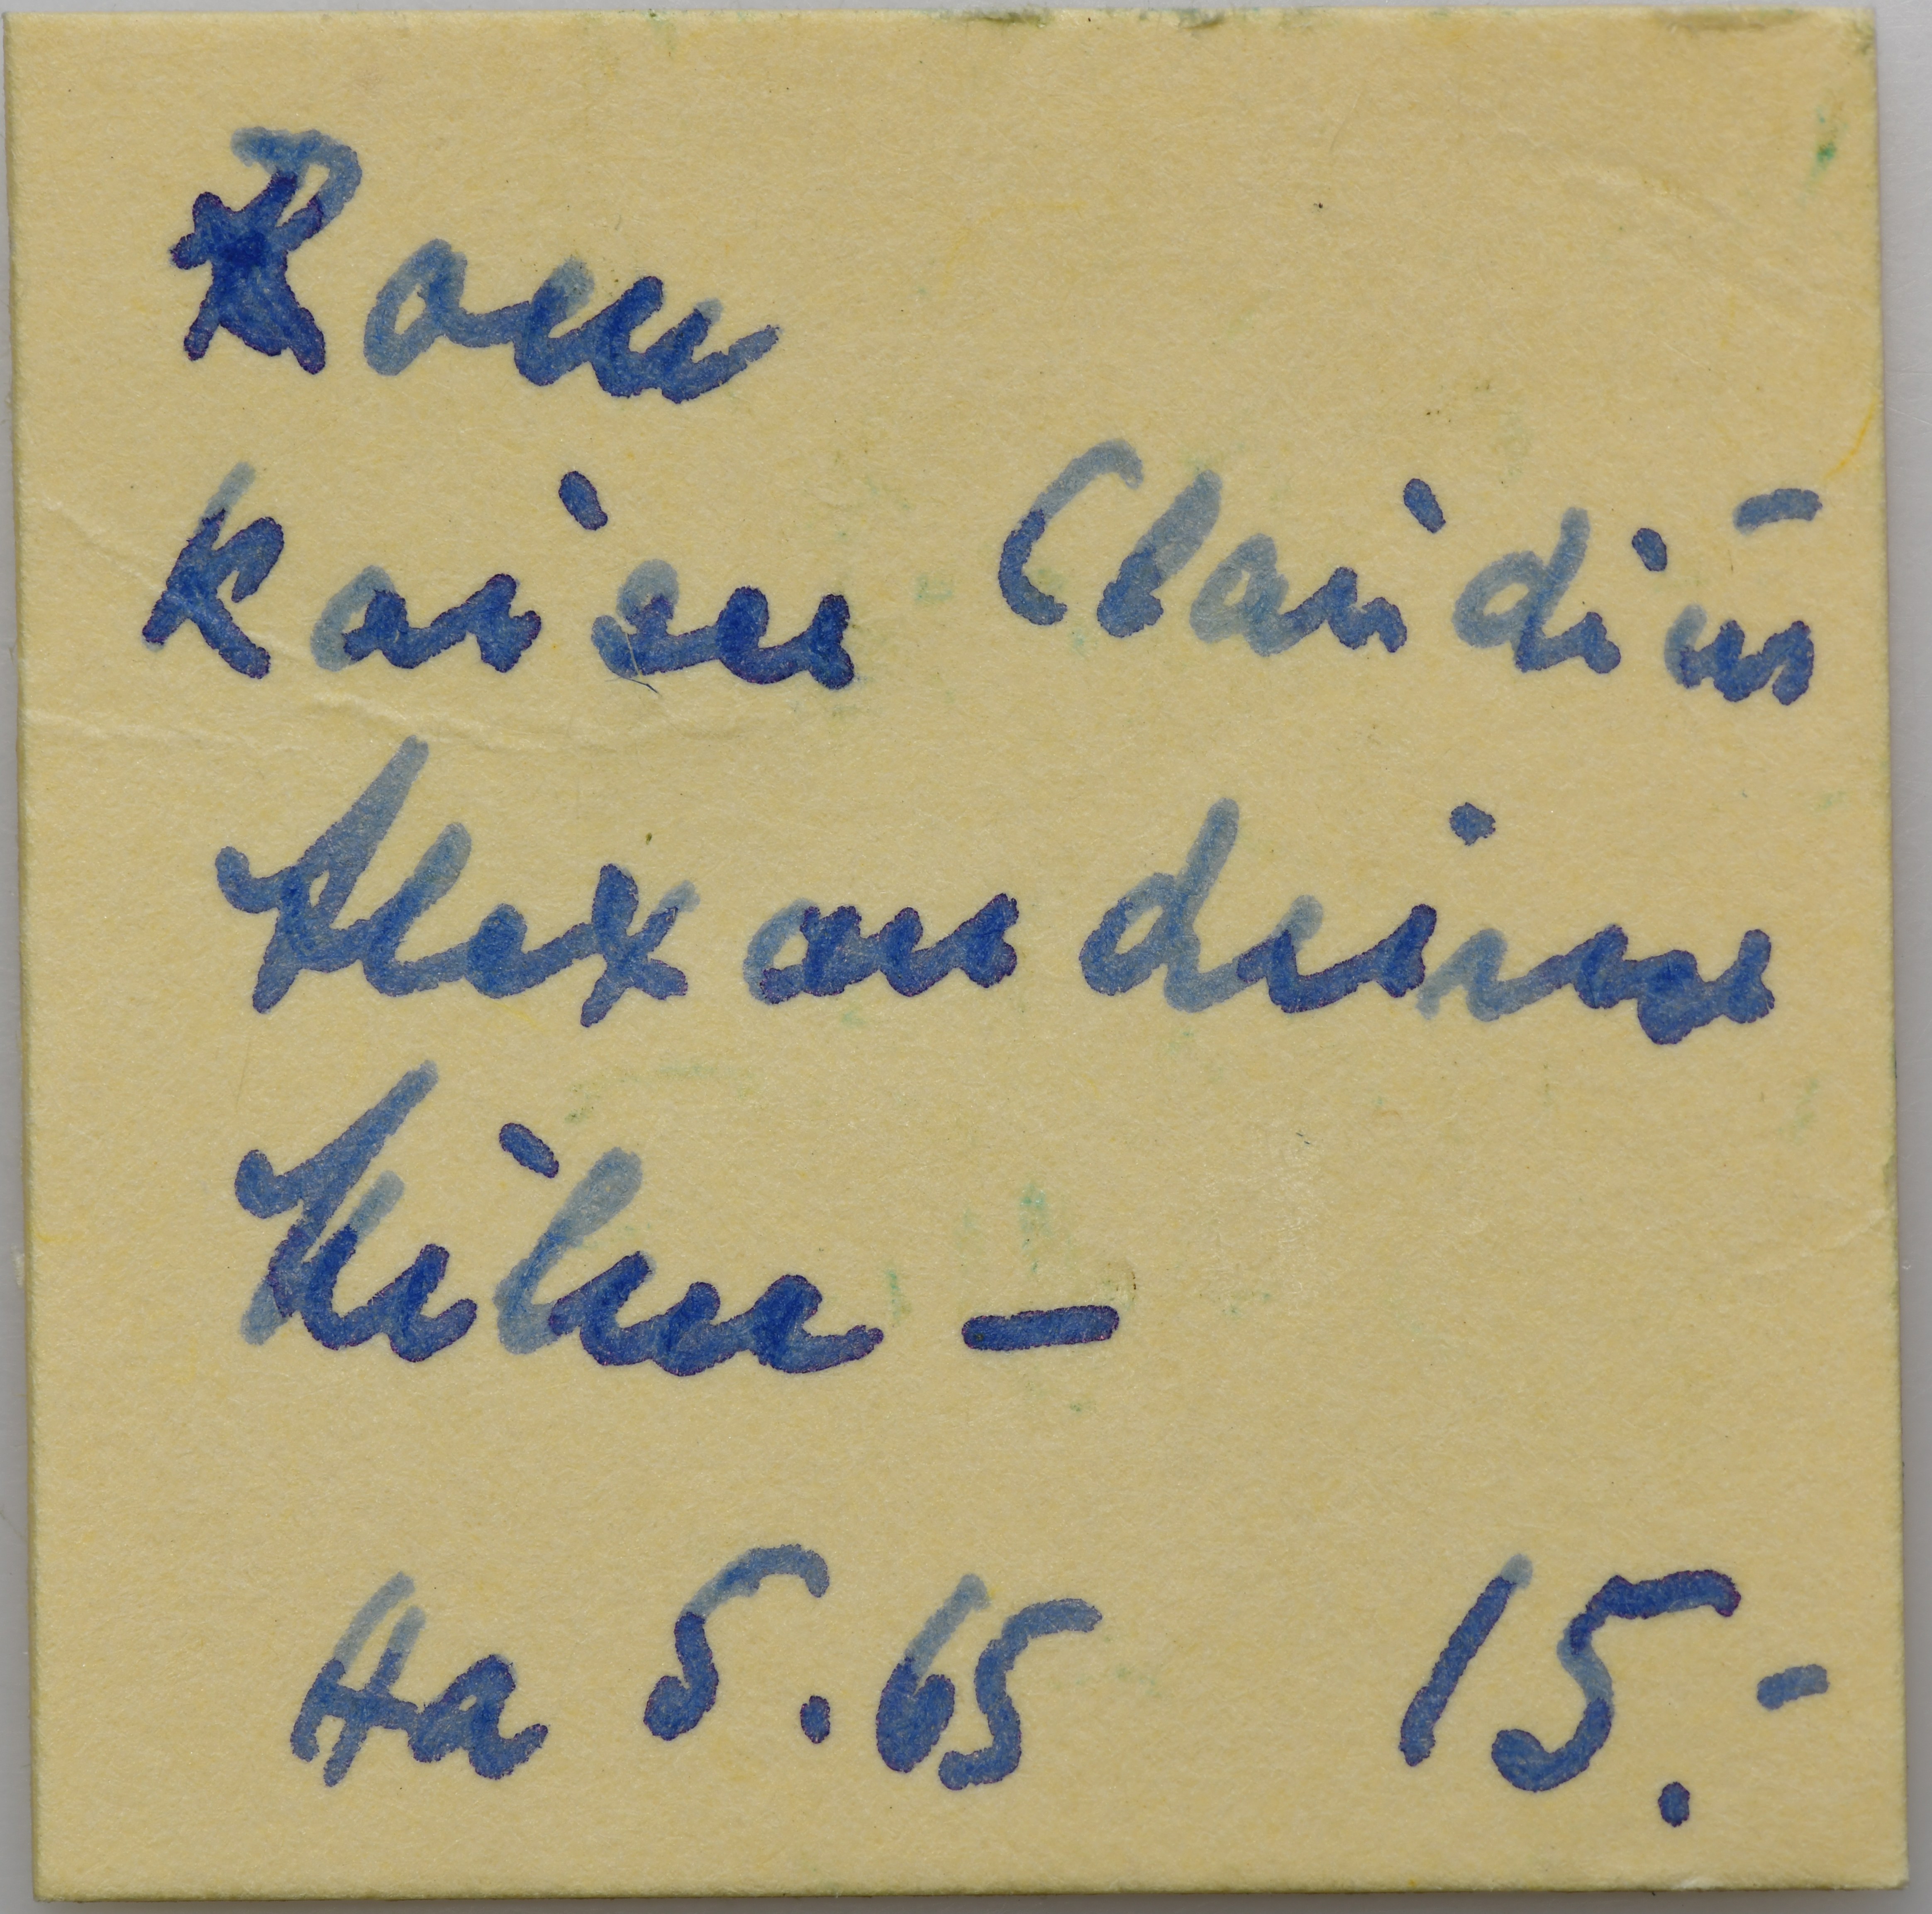 Rom
Kaiser Claudius
Alexandriner
Milne –
Ha 5.65 15.-